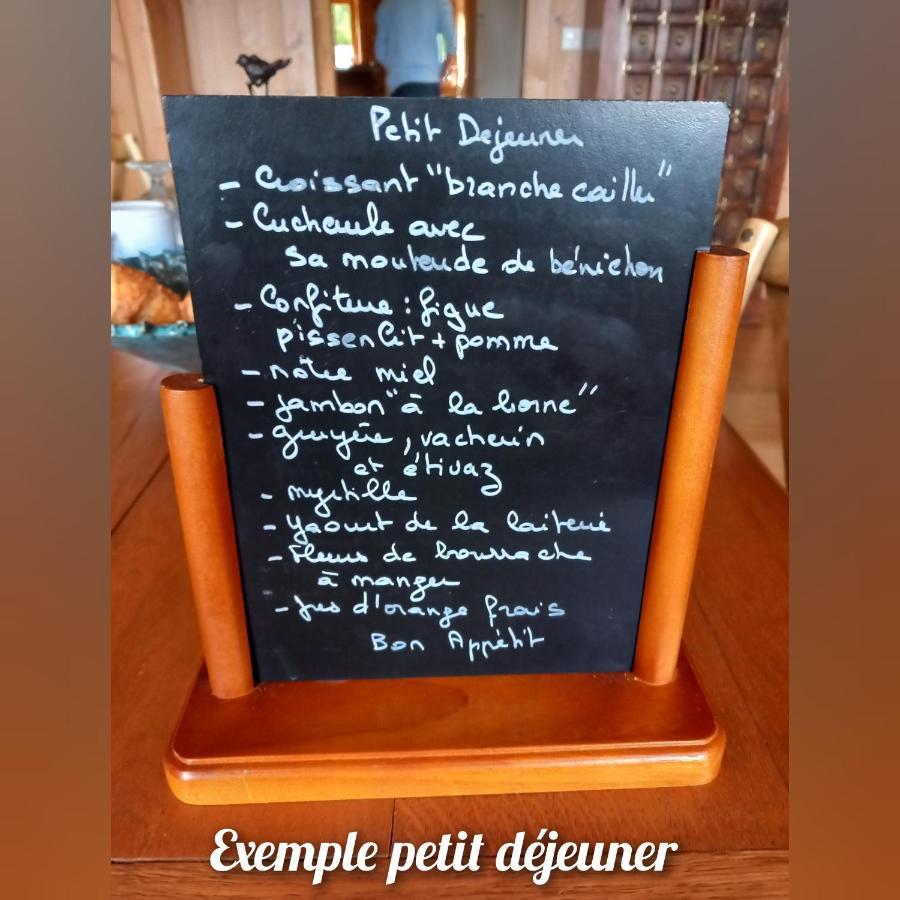 Petit Dejeuner
- Croissant "branche caillu"
- Cucheule avec
sa moutarde de bénichon
- Confiture : figue
pissenlit + pomme
- nôtre miel
- jambon "à la borne"
- gruyère, vacherin
et étivaz
- myrtille
- yaourt de la laiterie
- Fleurs de bourrache
à manger
- jus d'orange frais
Bon Appétit
Exemple petit déjeuner